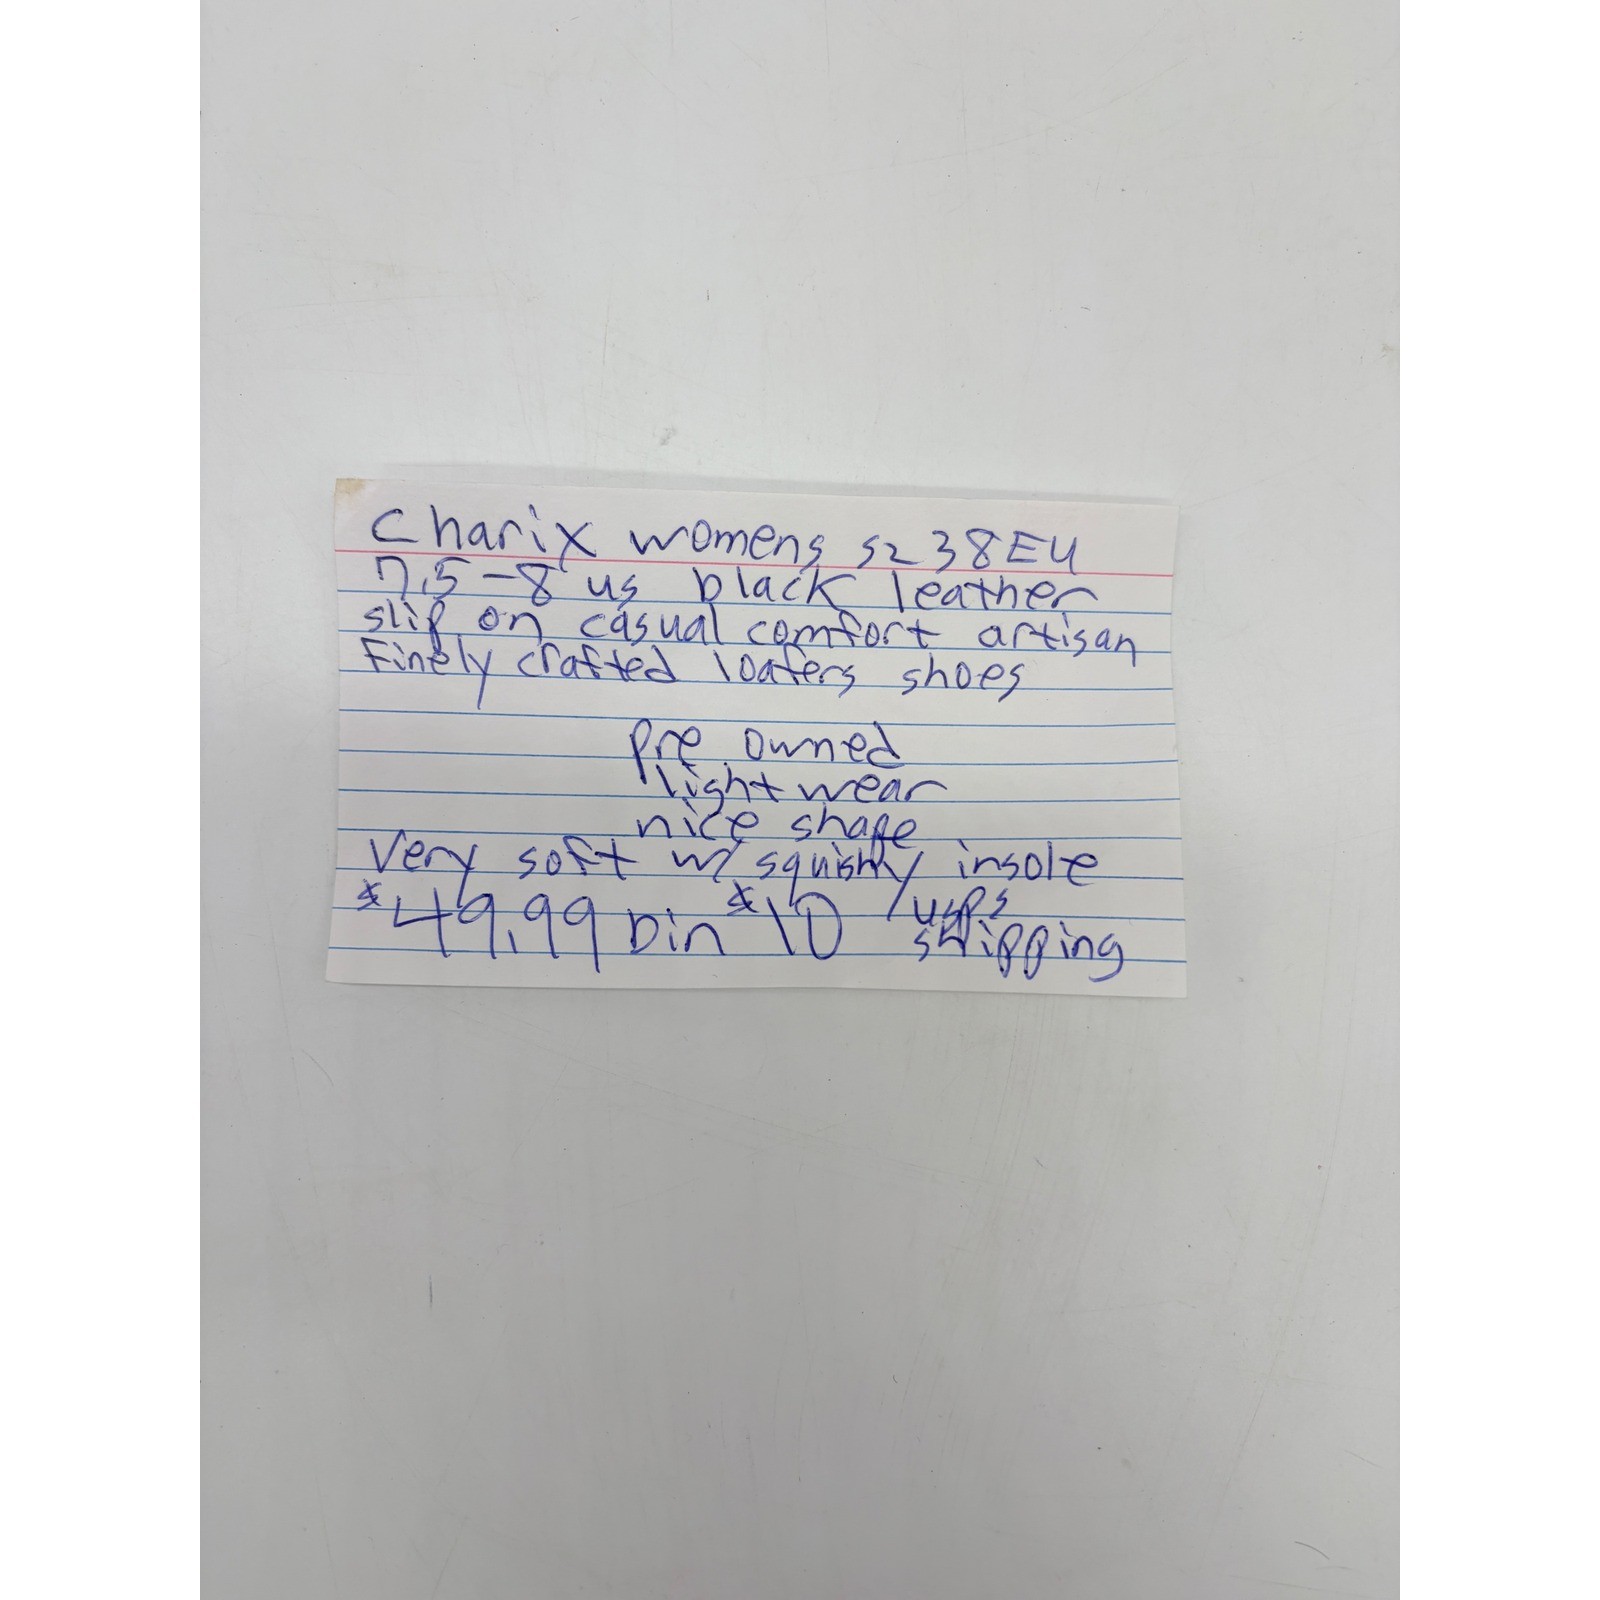 Charix womens sz 38EU
7.5-8 us black leather
slip on casual comfort artisan
Finely crafted loafers shoes
pre owned
light wear
nice shape
Very soft w/ squishy insole
$49.99 bin $10 usps
shipping